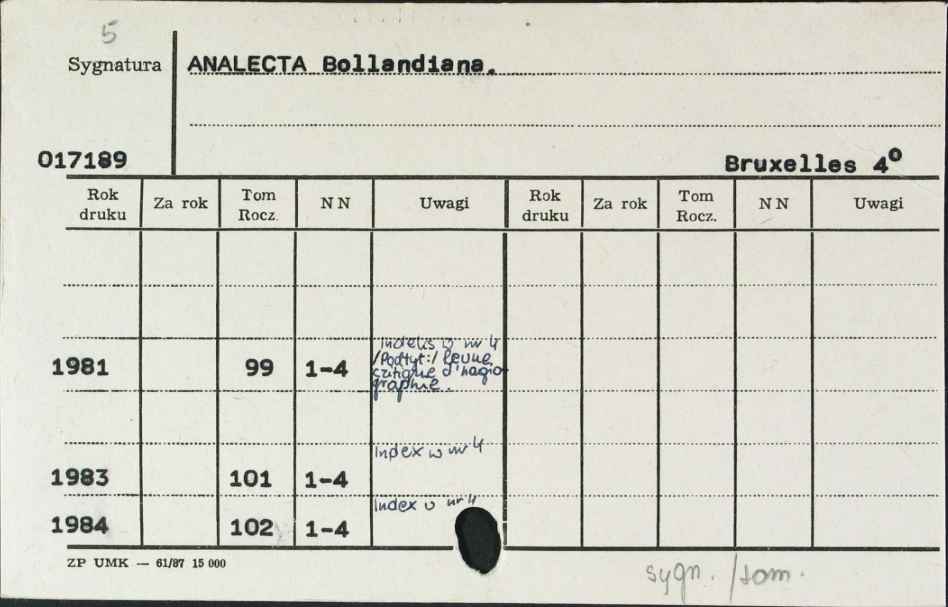 5
Sygnatura ANALECTA Bollandiana.
017189 Bruxelles 4º
Rok druku Za rok Tom Rocz. NN Uwagi Rok druku Za rok Tom Rocz. NN Uwagi
Indeks w nr 4
/Podtyt:/ Revue
critique d'hagio
graphie.
1981 99 1-4
Index w nr 4
1983 101 1-4
Index w nr 4
1984 102 1-4
ZP UMK — 61/87 15 000
sygn. /tom.